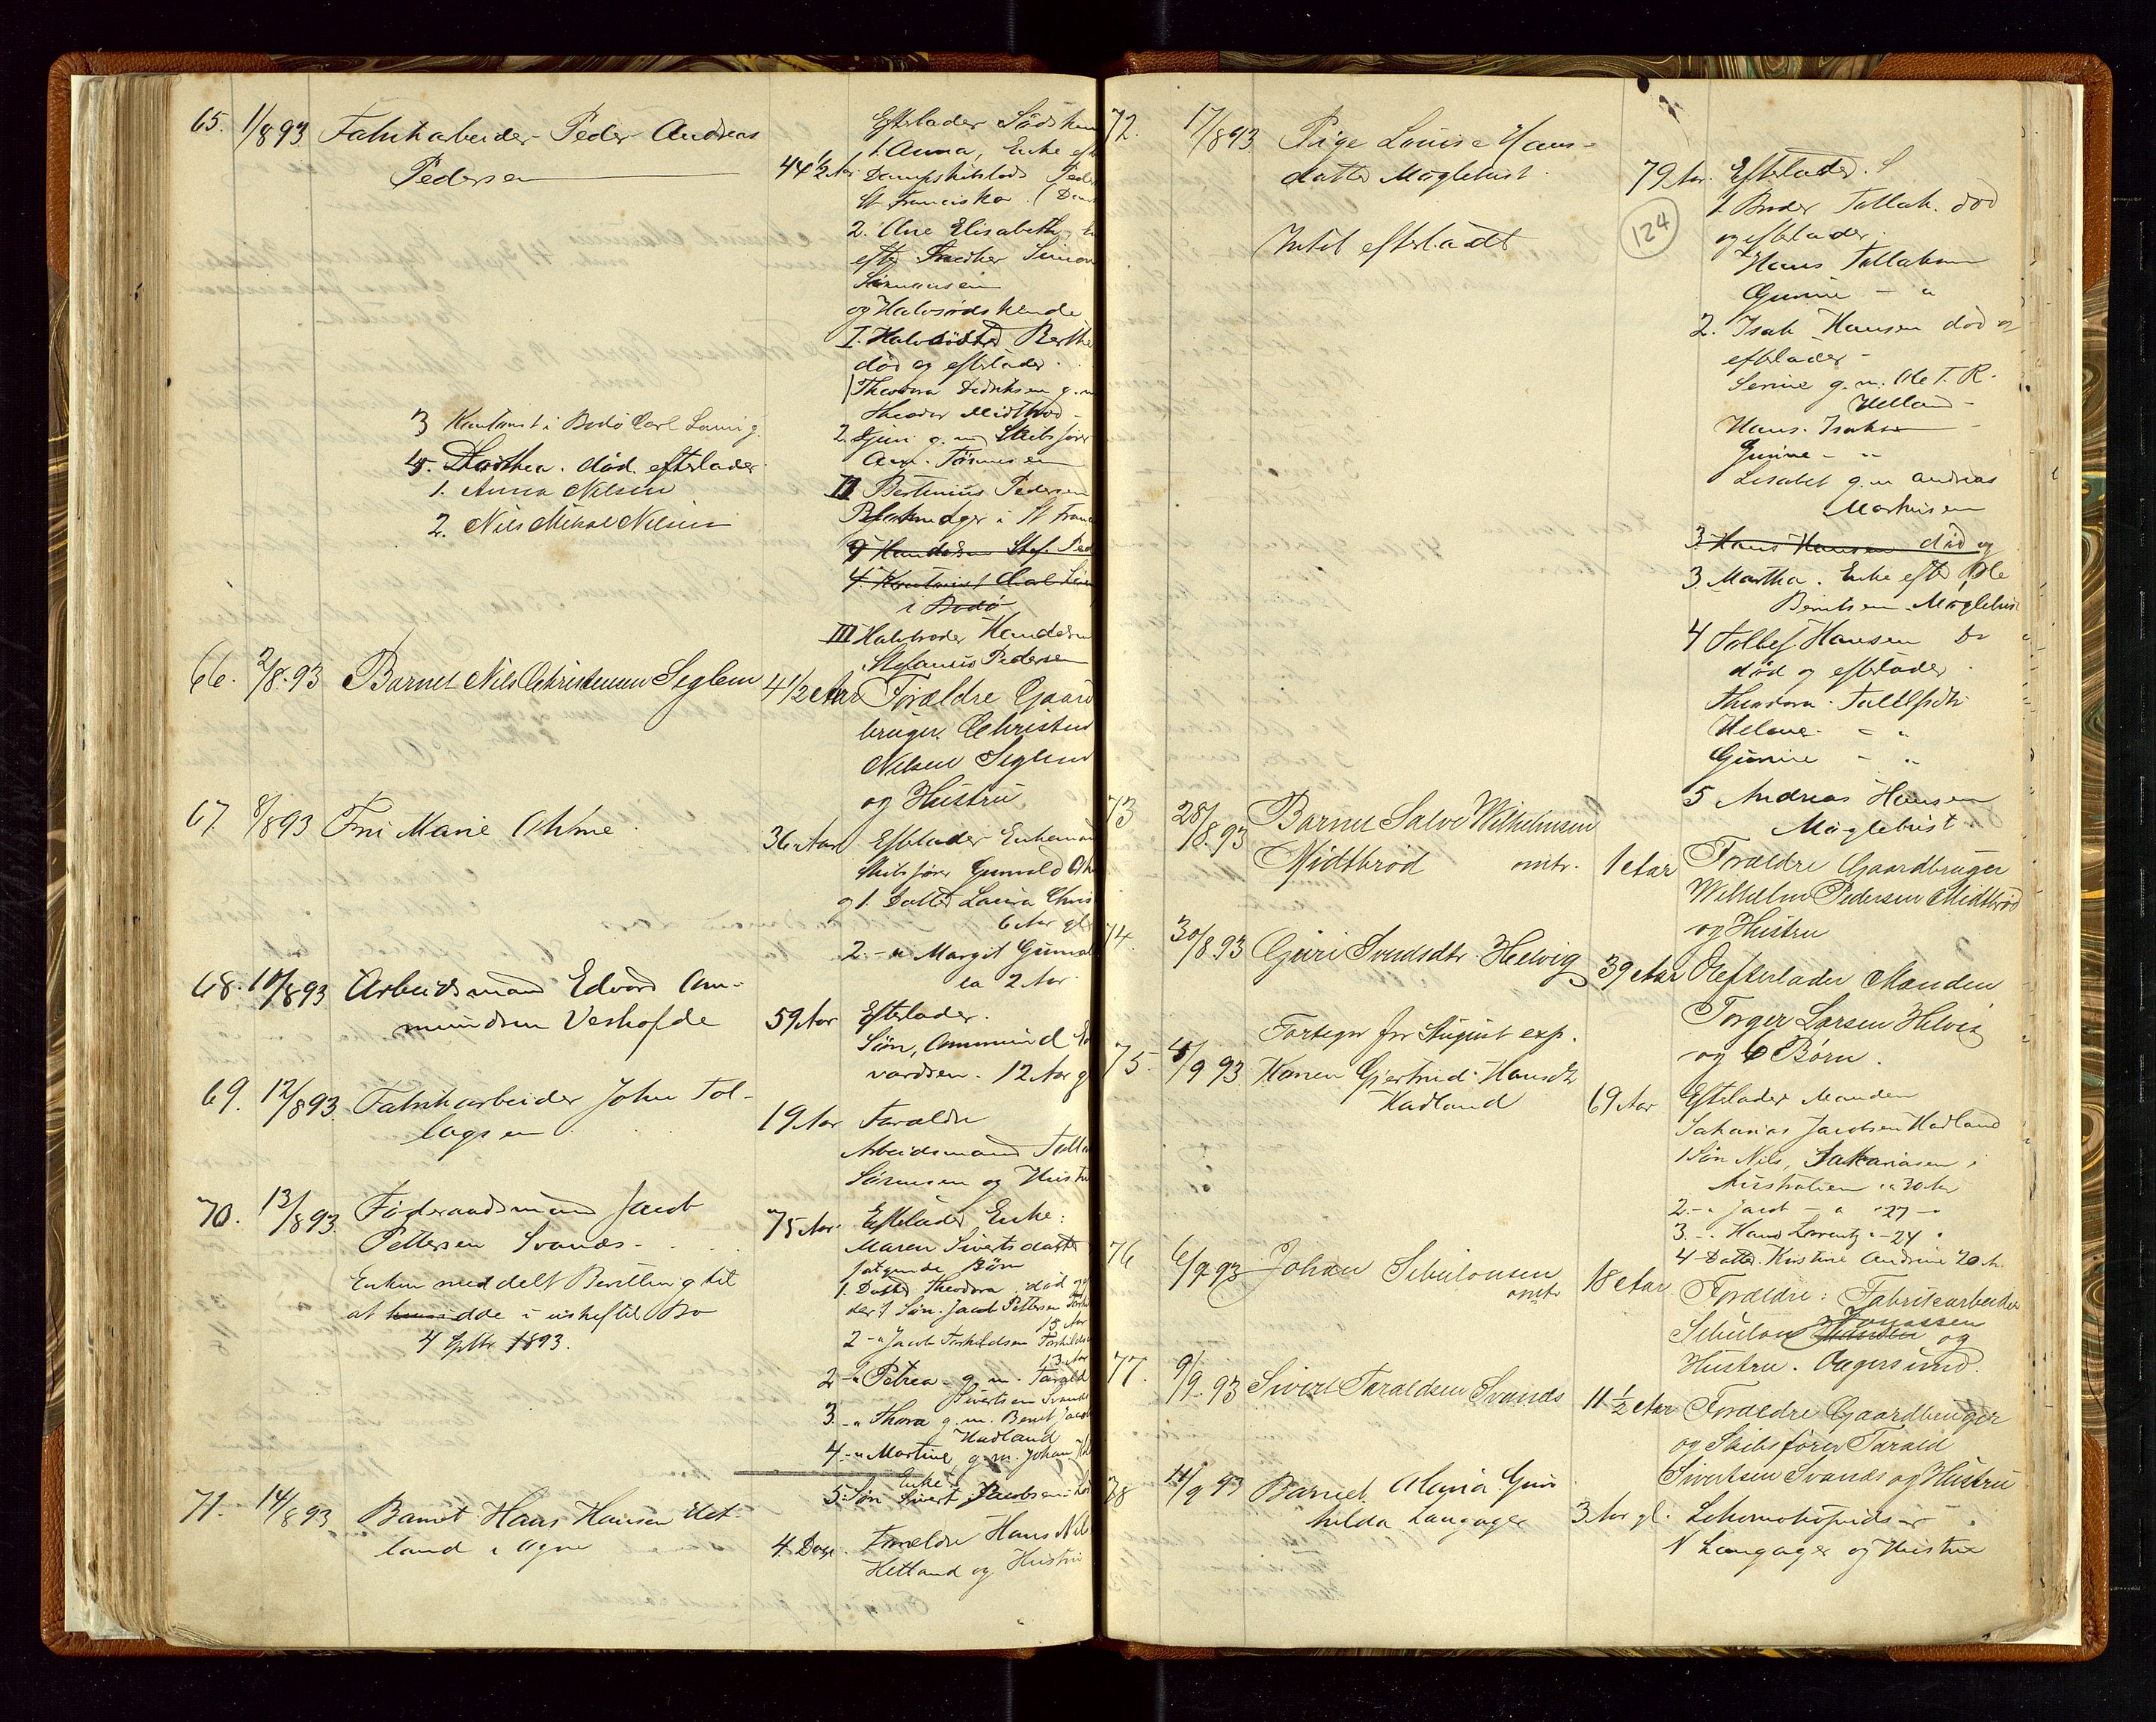 65. 1/8 93 Fabrikarbeider Peder Andreas
Pedersen
44 1/2 Aar
Efterlader Södsken
1. Anna, Enke eft
Dampskibslods Peder
St Francisko (
2. Ane Elisabeth,
efter Simon
og Halvsödskende
I. Halvsöster Berthe
död og efterlader
1 Theodora Didriksen g.m
Theodor Midtbröd
2. Guri g. m Skibsförer
Am. Tönnesen
3 Kontorist i Bodö Carl
4. Dorthea. död. efterlader
1. Anna Nilsen
2. Nils Mikal Nilsen
II Bertinius Pedersen
i St Fran
i Bodö
III Halvbroder
Stefanius Pedersen
66. 2/8. 93 Barnet Nils Christensen Seglem 4 1/2 Aar
Forældre Gaard
bruger. Christen
Nilsen Seglem
og Hustru
67. 8/8 93 Fru Marie
36 Aar
Efterlader Enkemand
Skibsförer Gunvald
og 1. Datter Laura Chris
6 Aar gl
2 -"- Margit Gunval
ca 2 Aar
68. 10/8 93 Arbeidsmand Edvard Am-
mundsen Veshovde
59 Aar
Efterlader.
Sön, Ammund Ed
vardsen. 12 Aar g
69. 12/8 93. Fabrikarbeider John Tol-
lagsen
19 Aar
Forældre
Arbeidsmand
Sörensen og Hustru
70. 13/8 93 Föderaadsmand Jacob
Pettersen Svanæs
75 Aar.
Enken meddelt Bevilling til
at sidde i uskiftet Bo
4 Sptbr 1893.
Efterlader Enke:
Maren Sivertsdatter
fölgende Börn
1. Datter Theodora, död og
der 1 Sön. Jacob Pettersen
15 Aar
2 -"- Jacob Torkildsen Torkilds
13 Aar
2 -"- Petrea - g. m. Tarald
Sivertsen Svanæs
3. -"- Thora g. m. Bernt Jacob
Hadland
4. -"- Martine, g.m. Johan
5. Sön Sivert Jacobsen
71. 14/8 93 Barnet Hans Hansen Het-
land i Ogne
4. Dage.
Forældre Hans Nils
Hetland og Hustru
72. 17/8 93. Pige Louise Hans-
datter Möglebust.
79 Aar.
124
Intet efterladt
Efterlader.
1. Broder Tollak. död
og efterlader.
Hans Tollaksen
Gunne - "
2. Isak Hansen död og
efterlader
Serine g. m. Ole T. R.
Helland
Hans. Isaksen
Gurine - "
Lisabet g.m Andreas
Markusen
3. Hans Hansen död og
3. Martha. Enke efter Ole
Berntsen Möglebust
4 Tollef Hansen
död og efterlader
Theodora. Tollefsdtr
Helene - "
Gurine - "
5 Andreas Hansen
Möglebust
73 28/8. 93 Barnet Salve Wilhelmsen
Midtbröd omtr. 1 Aar
Forældre Gaardbruger
Wilhelm Pedersen Midtbröd
og Hustru
74. 30/8. 93 Guri Svendsdtr. Helvig 39 Aar
Efterlader Manden
Torger Larsen Helvig
og 6 Börn.
Fortegn for August exp.
75. 4/9 93 Konen Gjertrud Hansdtr
Hadland 69 Aar
Efterlader Manden
Sakarias Jacobsen Hadland
1 Sön Nils, Sakariasen i
Australien " 30 Aar
2. -"- Jacob - " - 27 - "
3. -"- Hans Lorentz - " - 24 "
4 - Datter Kristine Andrine 20 A.
76 6/9 93 Johan Sebulonsen
omtr 18 Aar
Forældre: Fabrikarbeider
Jonassen
Sebulon Hansen og
Hustru. Aagersund.
77. 9/9. 93 Sivert Taraldsen Svanæs 11 1/2 Aar
Forældre Gaardbruger
og Skibsförer Tarald
Sivertsen Svanæs og Hustru
78 11/9 93 Barnet. Maria Gun
hilda Langager 3 Aar gl.
N Langager og Hustru